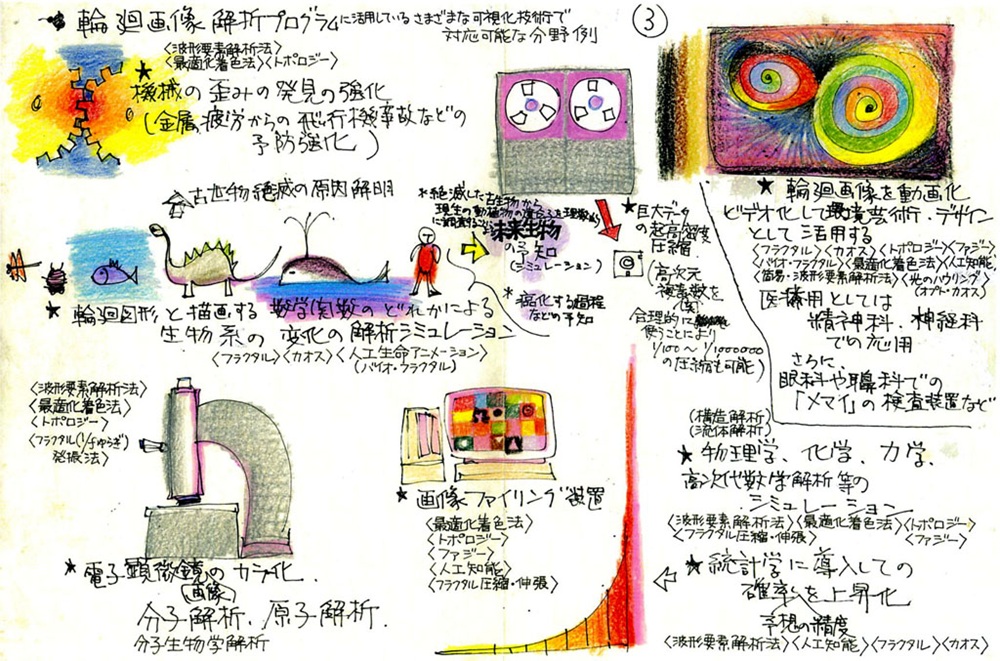 輪廻画像解析プログラムに活用しているさまざまな可視化技術で
対応可能な分野例
③
〈波形要素解析法〉
〈最適化着色法〉〈トポロジー〉
★機械の歪みの発見の強化
(金属疲労からの飛行機事故などの
予防強化)
古生物絶滅の原因解明
★輪廻図形と描画する数学関数のどれかによる
生物系の変化の解析シミュレーション
〈フラクタル〉〈カオス〉〈人工生命アニメーション〉
(バイオ・フラクタル)
*絶滅した古生物から
現生の動植物の
未来生物
の予知
(シミュレーション)
*進化する過程
などの予知
★巨大データ
の超高密度
圧縮
(高次元
複素数を
合理的に
使うことにより
1/100〜1/1000000
の圧縮も可能)
★輪廻画像を動画化
ビデオ化して環境芸術・デザイン
として活用する
〈フラクタル〉〈カオス〉〈トポロジー〉〈ファジー〉
〈バイオ・フラクタル〉〈最適化着色法〉〈人工知能〉
〈簡易・波形要素解析法〉〈光のハウリング〉
(オプト・カオス)
医療用としては
精神科、神経科
での応用
さらに、
眼科や耳鼻科での
「メマイ」の検査装置など
〈波形要素解析法〉
〈最適化着色法〉
〈トポロジー〉
〈フラクタル(1/fゆらぎ)
発振法〉
★電子顕微鏡のカラー化
(画像)
分子解析、原子解析、
分子生物学解析
★画像ファイリング装置
〈最適化着色法〉
〈トポロジー〉
〈ファジー〉
〈人工知能〉
〈フラクタル圧縮・伸張〉
(構造解析)
(流体解析)
★物理学、化学、力学、
高次代数学解析等の
シミュレーション
〈波形要素解析法〉〈最適化着色法〉〈トポロジー〉
〈フラクタル圧縮・伸張〉〈ファジー〉
★統計学に導入しての
確率を上昇化
予想の精度
〈波形要素解析法〉〈人工知能〉〈フラクタル〉〈カオス〉